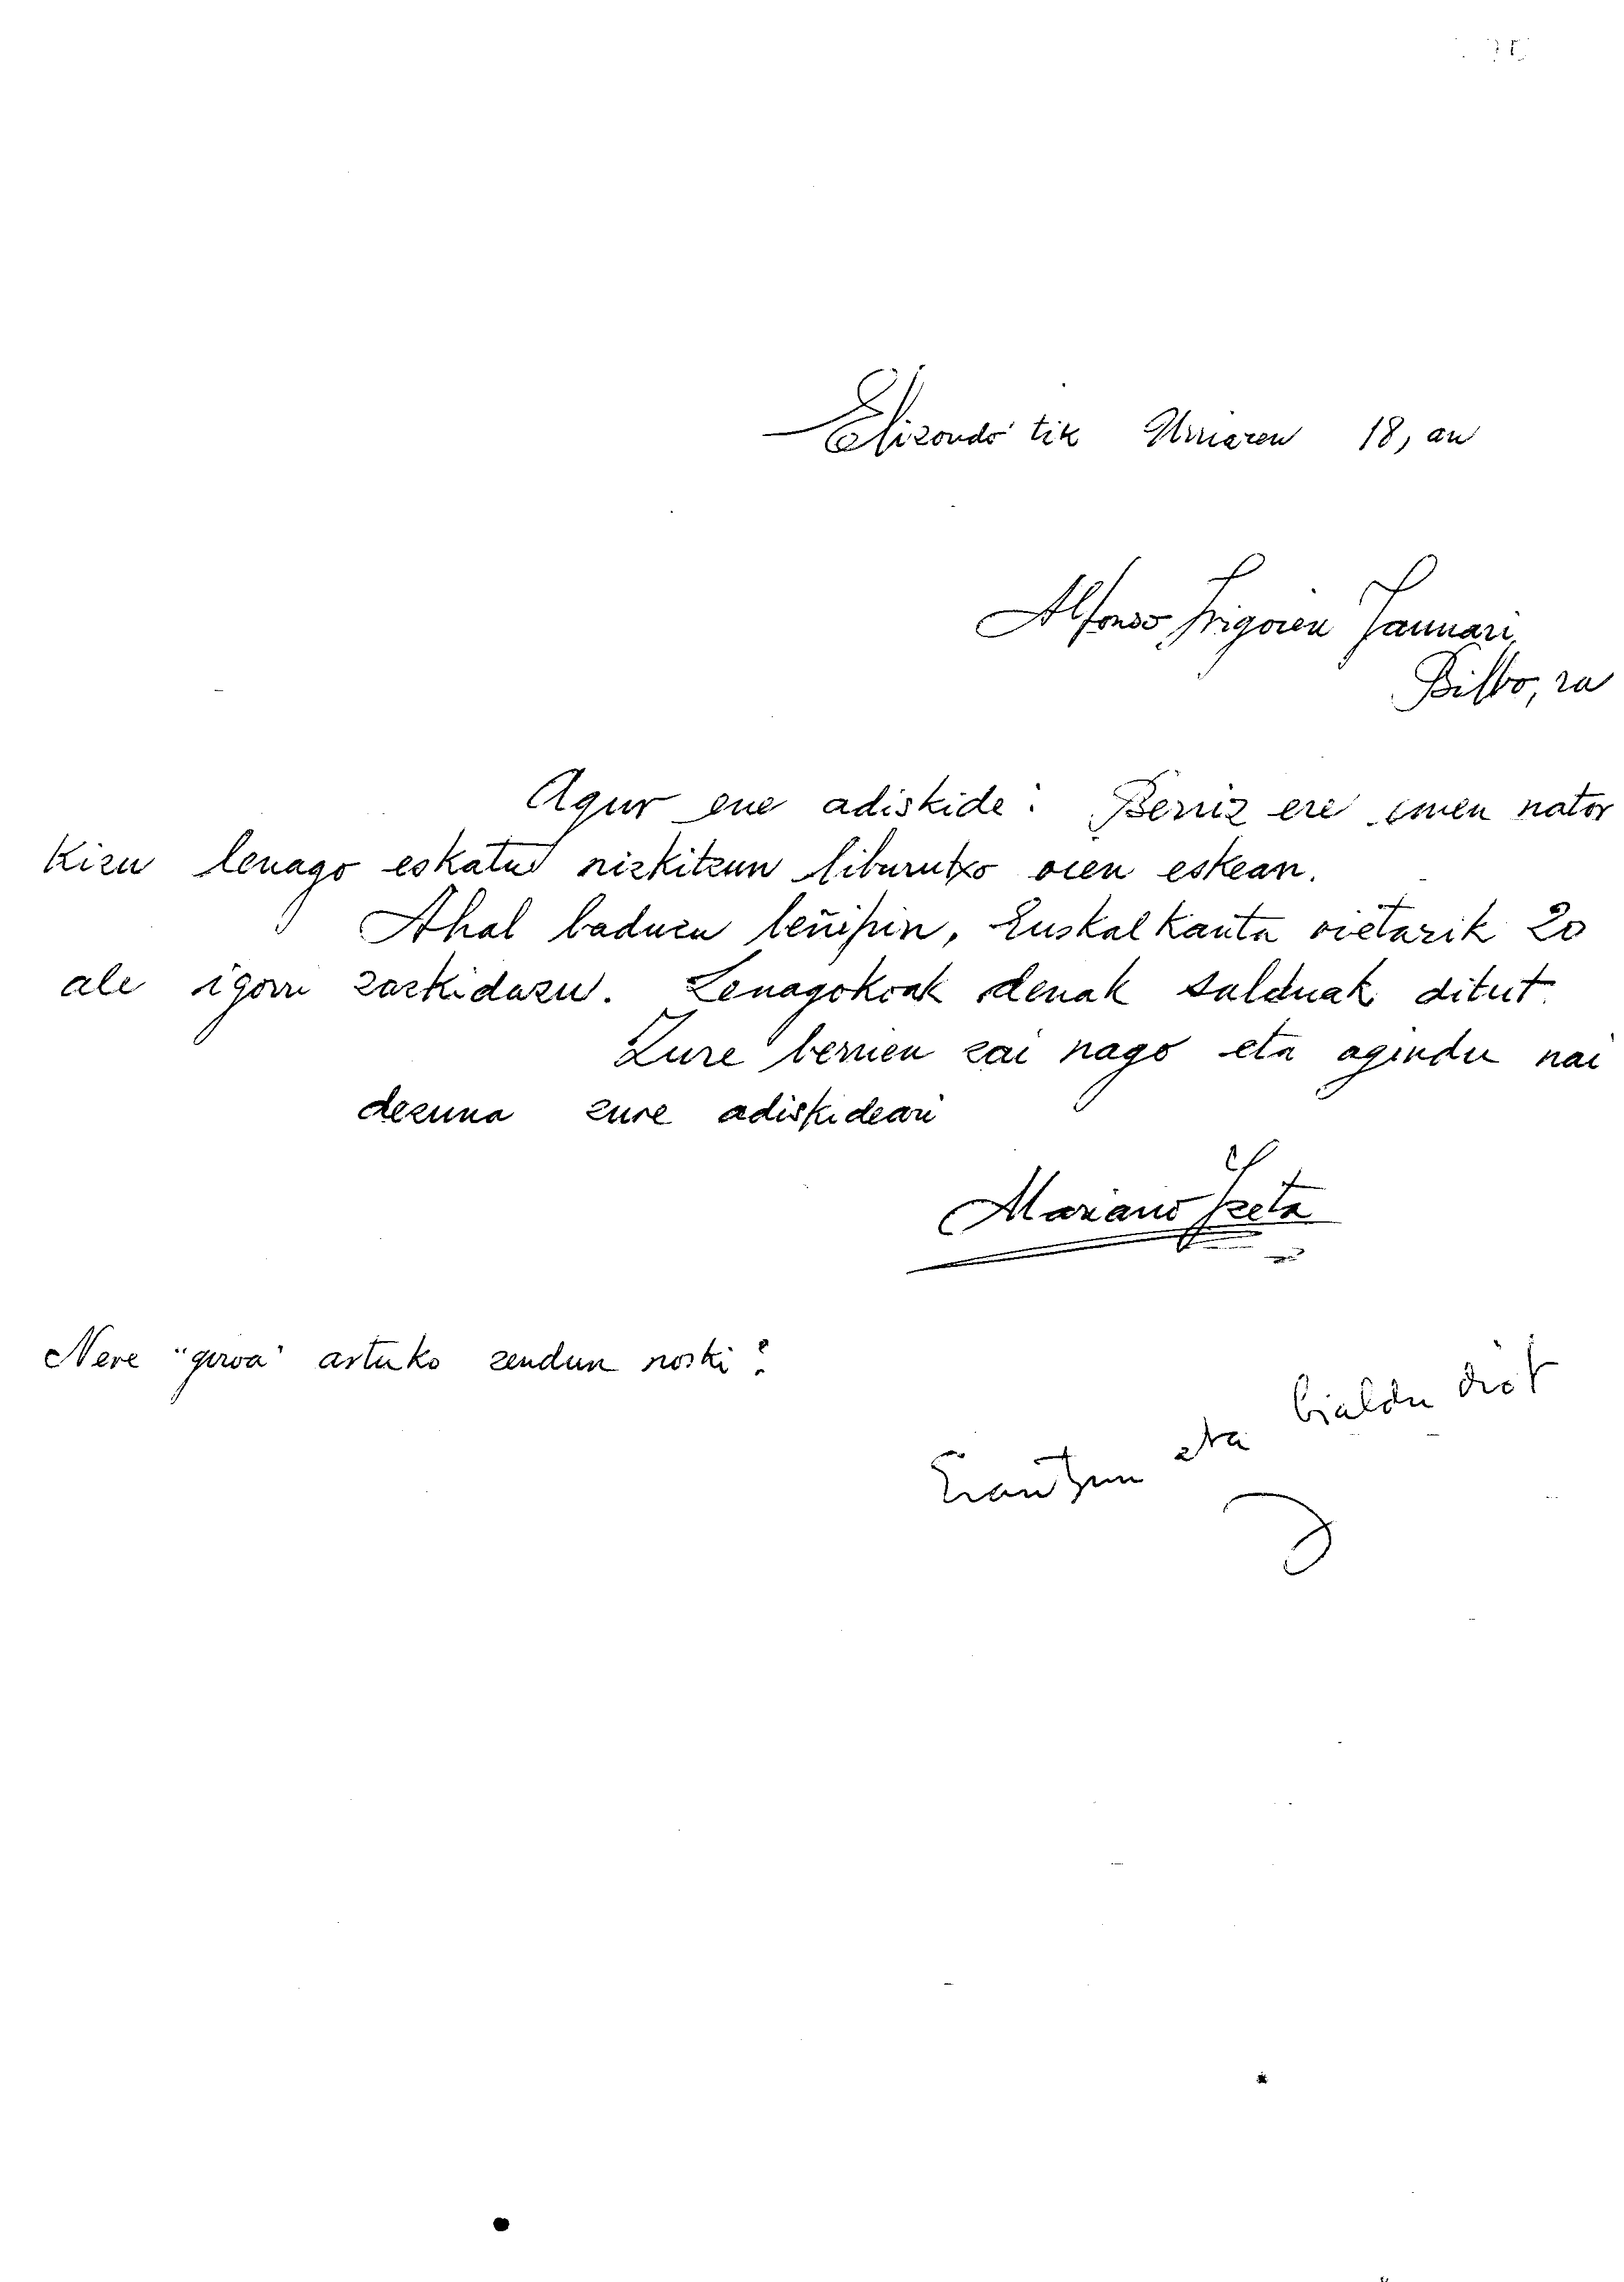 Elizondo'tik Urriaren 18, an
Alfonso Irigoien Jaunari,
Bilbo, ra
Agur ene adiskide: Berriz ere emen nator
kizu lenago eskatu nizkitzun liburutxo oien eskean.
Ahal baduzu leñipin, Euskal kanta oietarik 20
ale igorri zazkidazu. Lenagokoak denak salduak ditut.
Zure berrien zai nago eta agindu nai
dezuna zure adiskideari
Mariano Izeta
Nere "giroa" artuko zendun noski?
Erantzun eta bialdu diot